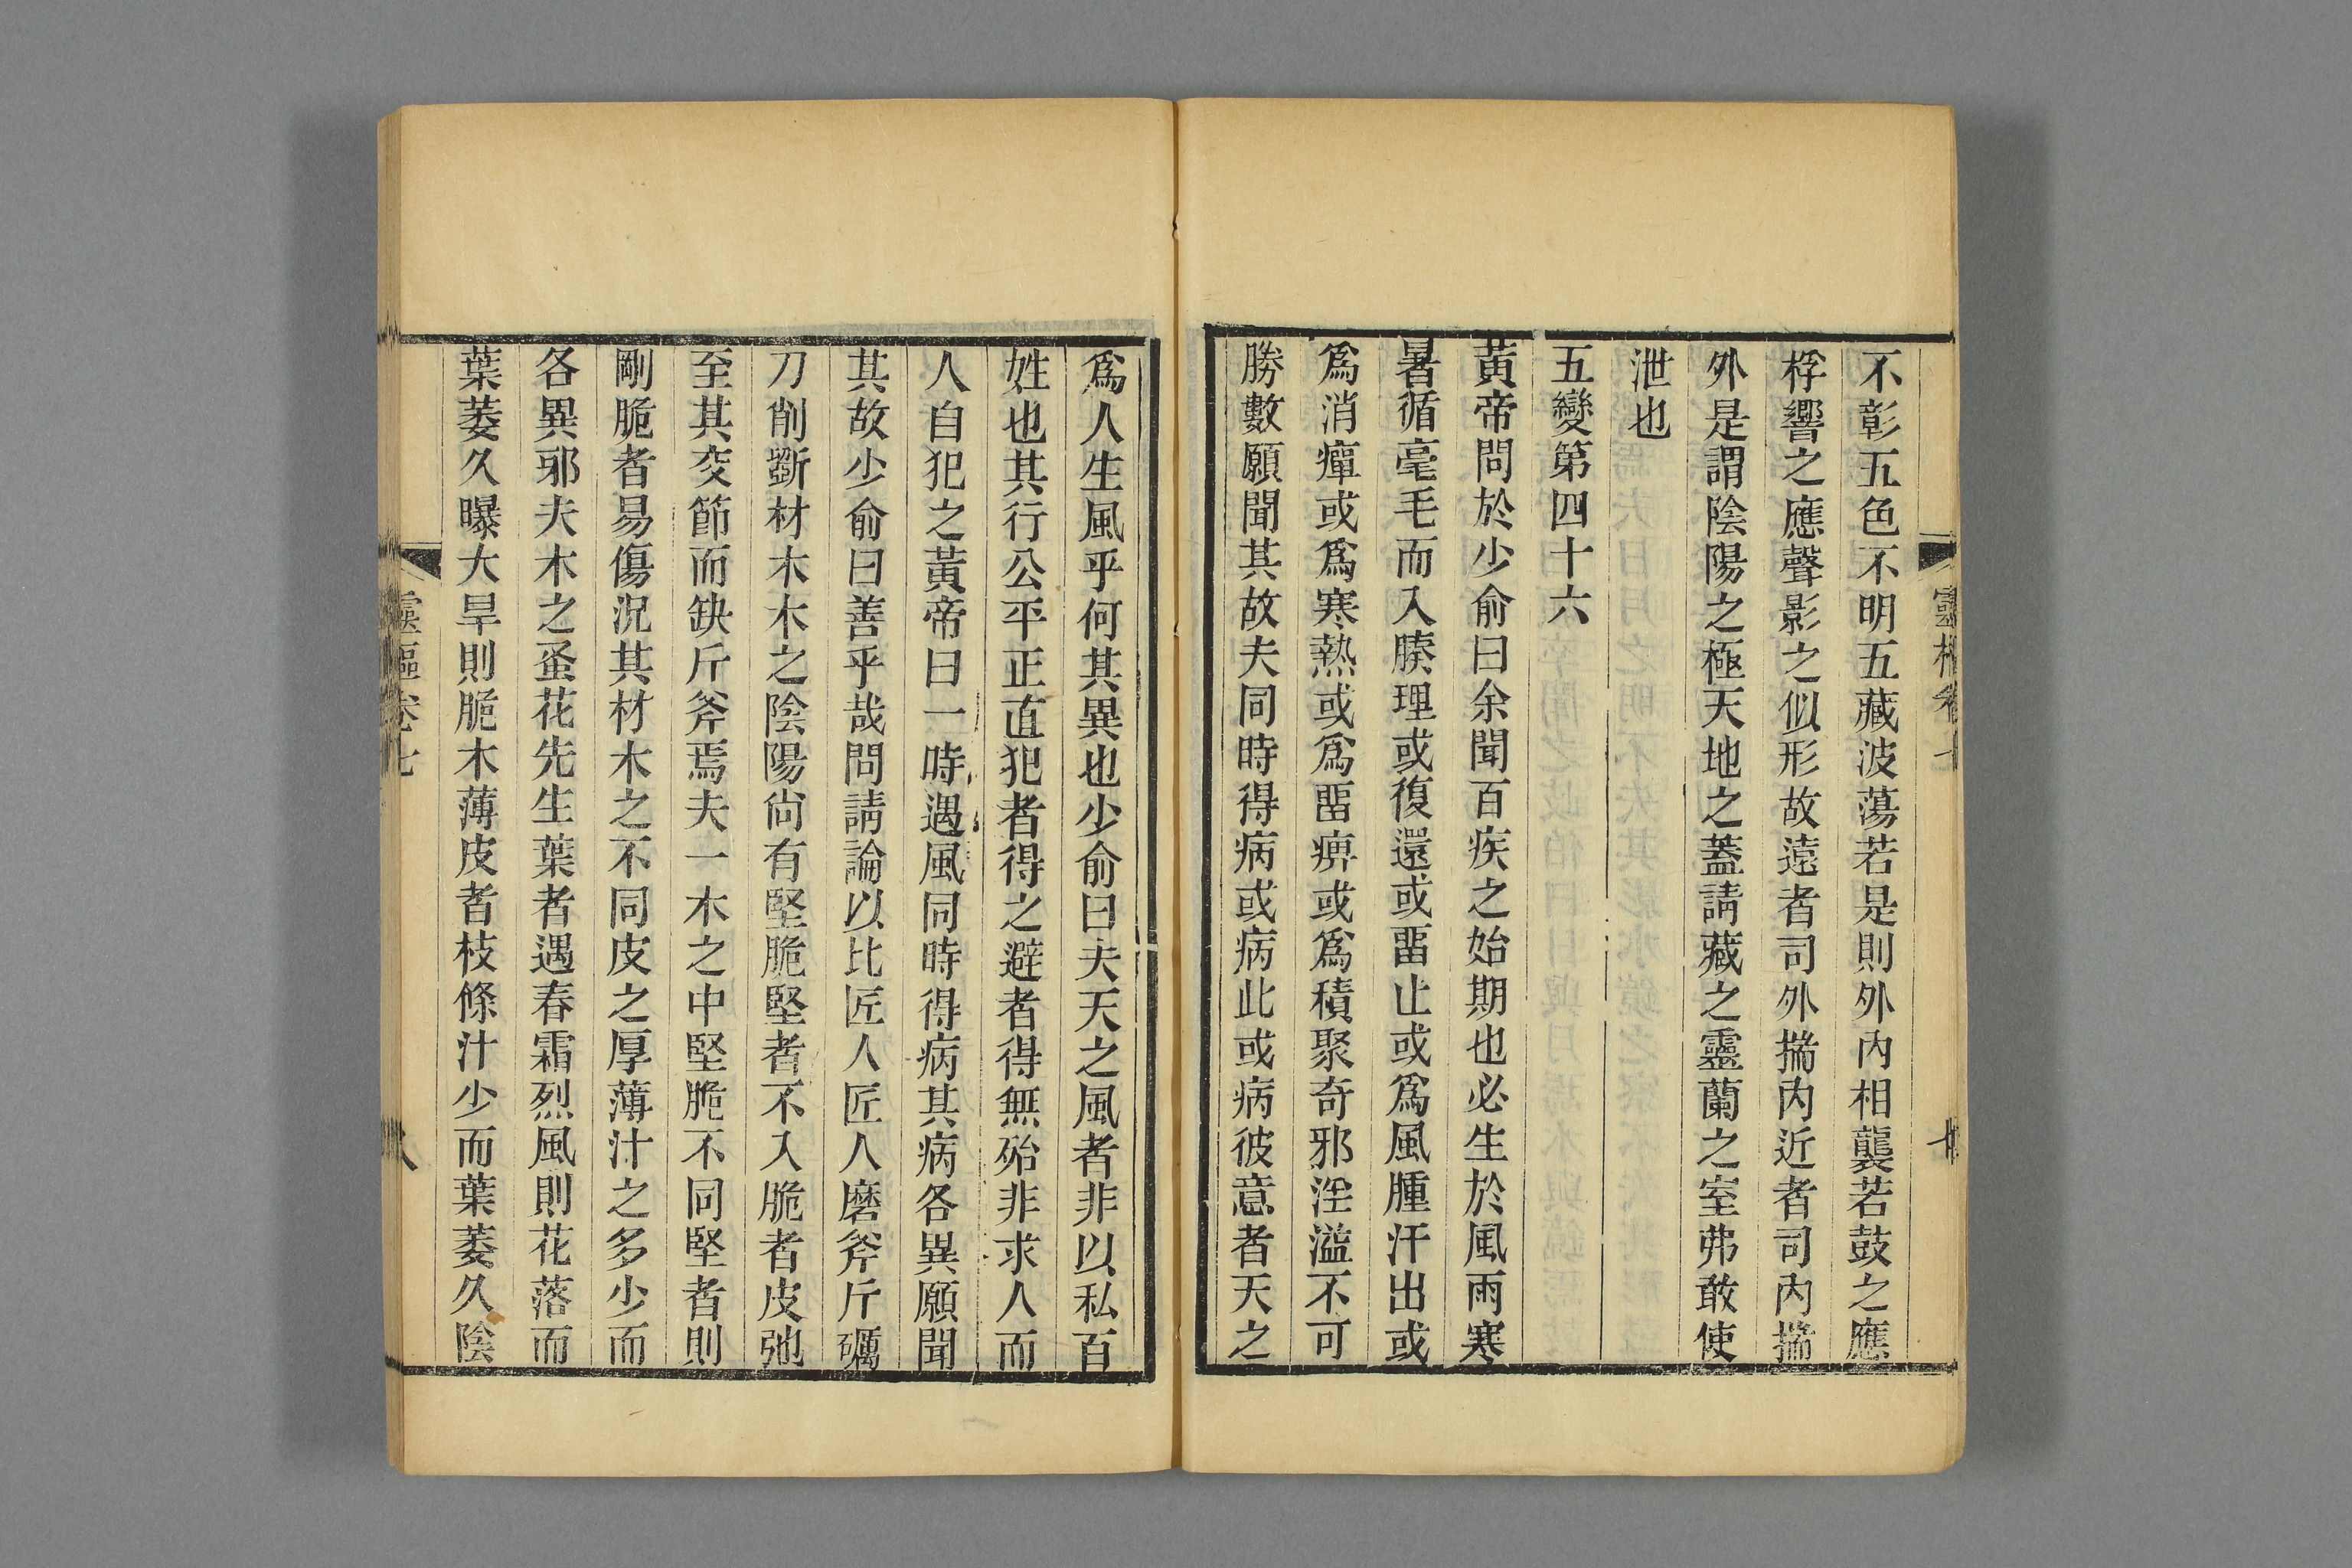 不彰五色不明五藏波蕩若是則外內相襲若鼓之應
桴響之應聲影之似形故遠者司外揣內近者司內揣
外是謂陰陽之極天地之蓋請藏之靈蘭之室弗敢使
泄也
五變第四十六
黃帝問於少俞曰余聞百疾之始期也必生於風雨寒
暑循毫毛而入腠理或復還或畱止或爲風腫汗出或
爲消癉或爲寒熱或爲畱痹或爲積聚奇邪淫溢不可
勝數願聞其故夫同時得病或病此或病彼意者天之
爲人生風乎何其異也少俞曰夫天之風者非以私百
姓也其行公平正直犯者得之避者得無殆非求人而
人自犯之黃帝曰一時遇風同時得病其病各異願聞
其故少俞曰善乎哉問請論以比匠人匠人磨斧斤礪
刀削斲材木木之陰陽尙有堅脆堅者不入脆者皮弛
至其交節而缺斤斧焉夫一木之中堅脆不同堅者則
剛脆者易傷況其材木之不同皮之厚薄汁之多少而
各異邪夫木之蚤花先生葉者遇春霜烈風則花落而
葉萎久曝大旱則脆木薄皮者枝條汁少而葉萎久陰
靈樞卷七